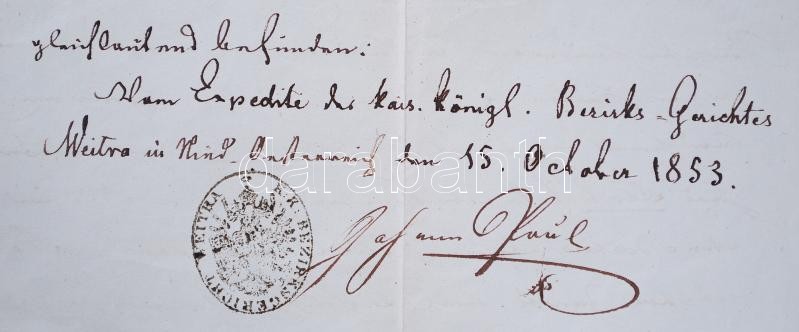 gleichlautend befunden:
Vom Expedite des kais. königl. Bezirks-Gerichtes
Weitra in Nied. Oesterreich den 15. October 1853.
darabanth
K. K. BEZIRKSGERICHT WEITRA
Johann Paul